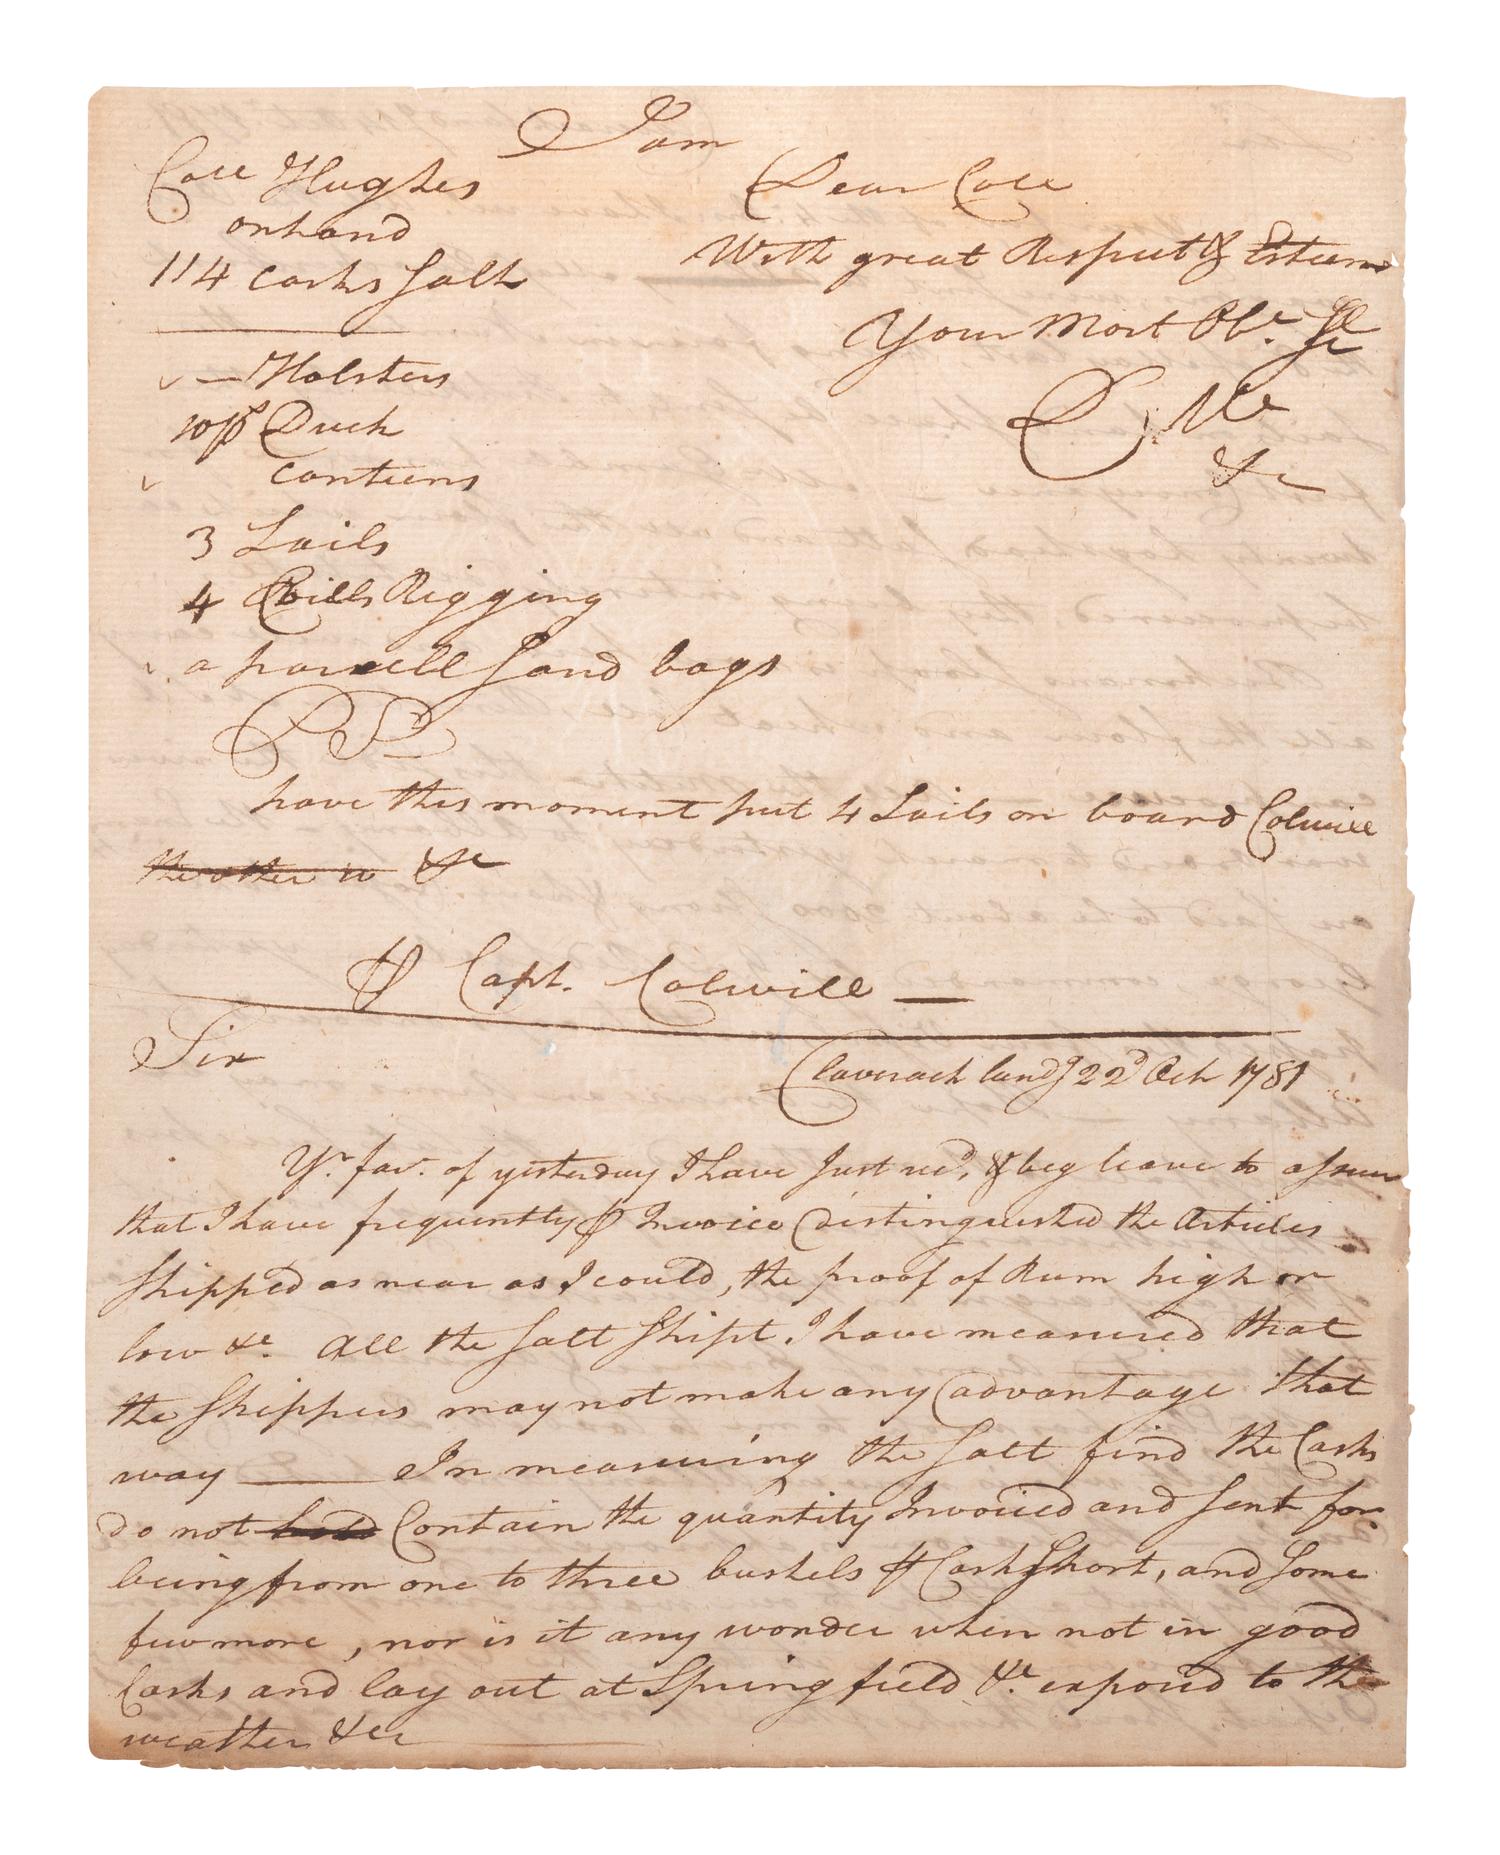 I am
Dear Coll
With great Respect & Esteem
Your Most Obt. Sr
&c
Coll Hughes
on hand
114 Casks Salt
Holsters
10 ps Duck
canteens
3 Sails
4 Coills Rigging
a parcell Sand bags
PS
have this moment put 4 Sails on board Colwill
the other is &c
⅌ Capt. Colwill —
Sir
Claverack landg 22d Oct 1781
Yr. fav. of yesterday I have Just recd. & beg leave to assure
that I have frequently ⅌ Invoice distinguished the Articles
Shipped as near as I could, the proof of Rum high or
low &c. All the Salt Shipt I have measured that
the Shippers may not make any advantage that
way — In measuring the Salt find the Casks
do not Contain the quantity Invoiced and Sent for
being from one to three bushels ⅌ Cask Short, and Some
few more, nor is it any wonder when not in good
Casks and lay out at Springfield &c. exposed to the
weather &c